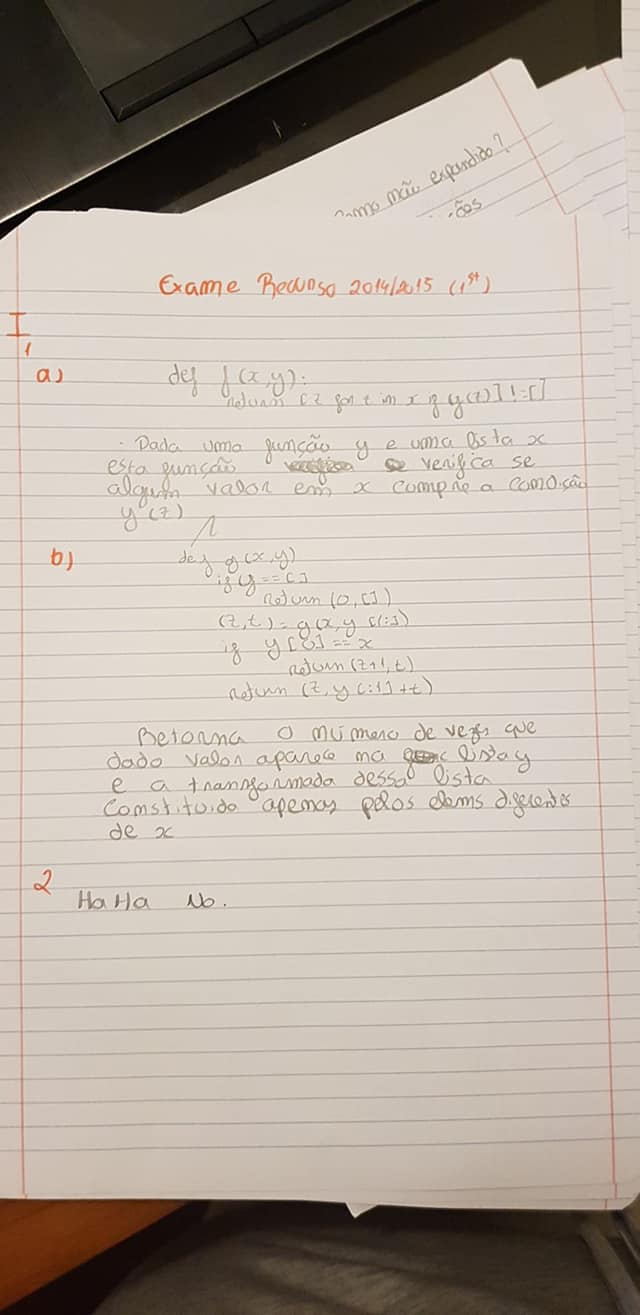 como não expandido?
Exame Recurso 2014/2015 (1st)
I
1
a)
def f(x,y):
return [z for z in x if y(z)] != []
. Dada uma função y e uma lista x
esta função se verifica se
algum valor em x cumpre a condição
y(z)
b)
def g(x,y)
if y == []
return (0,[])
(z,t) = g(x,y[1:])
if y[0] == x
return (z+1,t)
return (z,y[:1]+t)
Retorna o número de vezes que
dado valor aparece na lista y
e a transformada dessa lista
Constituida apenas pelos elems diferentes
de x
2
HaHa No.